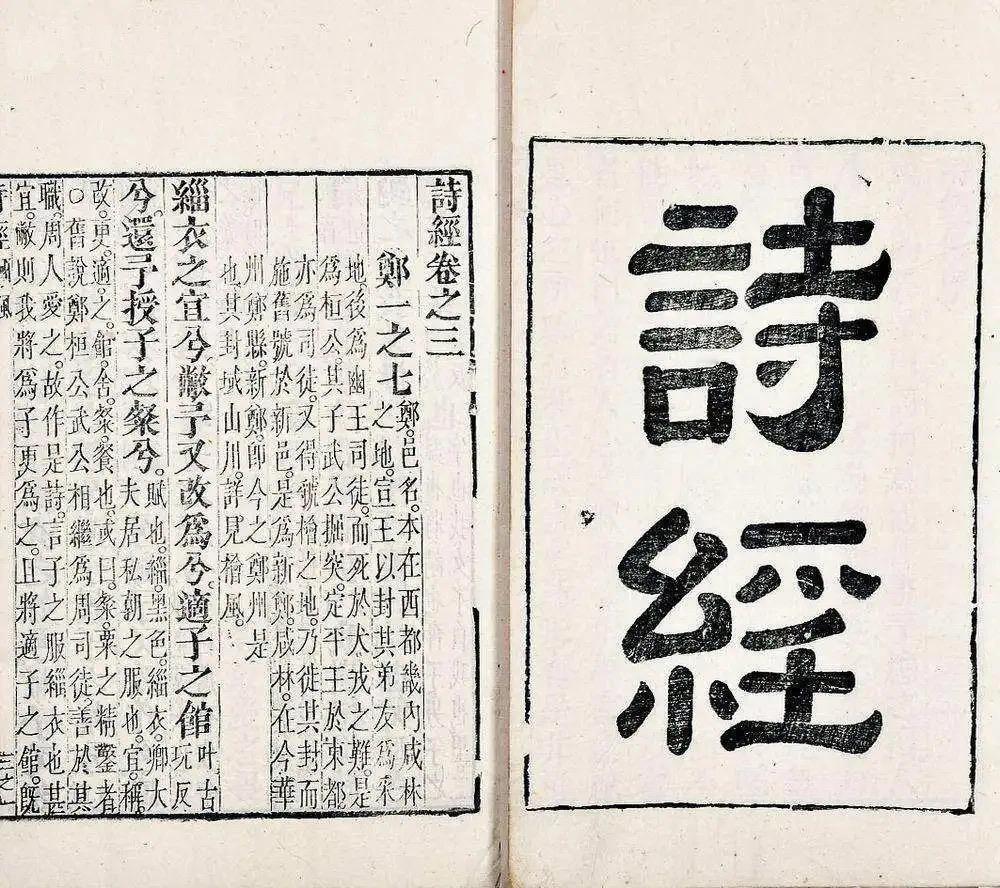 詩經
詩經卷之三
鄭一之七
鄭。邑名。本在西都畿內咸林
之地。宣王以封其弟友爲采
地。後爲幽王司徒。而死於犬戎之難。是
爲桓公。其子武公掘突。定平王於東都
亦爲司徒。又得虢檜之地。乃徙其封而
施舊號於新邑。是爲新鄭。咸林。在今華
州鄭縣。新鄭。卽今之鄭州是
也。其封域山川。詳見檜風。
緇衣之宜兮。敝予又改爲兮。適子之館
叶古
玩反
兮。還予授子之粲兮。
賦也。緇。黑色。緇衣。卿大
夫居私朝之服也。宜。稱。
改。更。適。之。館。舍。粲。餐也。或曰。粲。粟之精鑿者
○舊說鄭桓公武公相繼爲周司徒。善於其
職。周人愛之。故作是詩。言子之服緇衣也甚
宜。敝則我將爲子更爲之。且將適子之館。旣